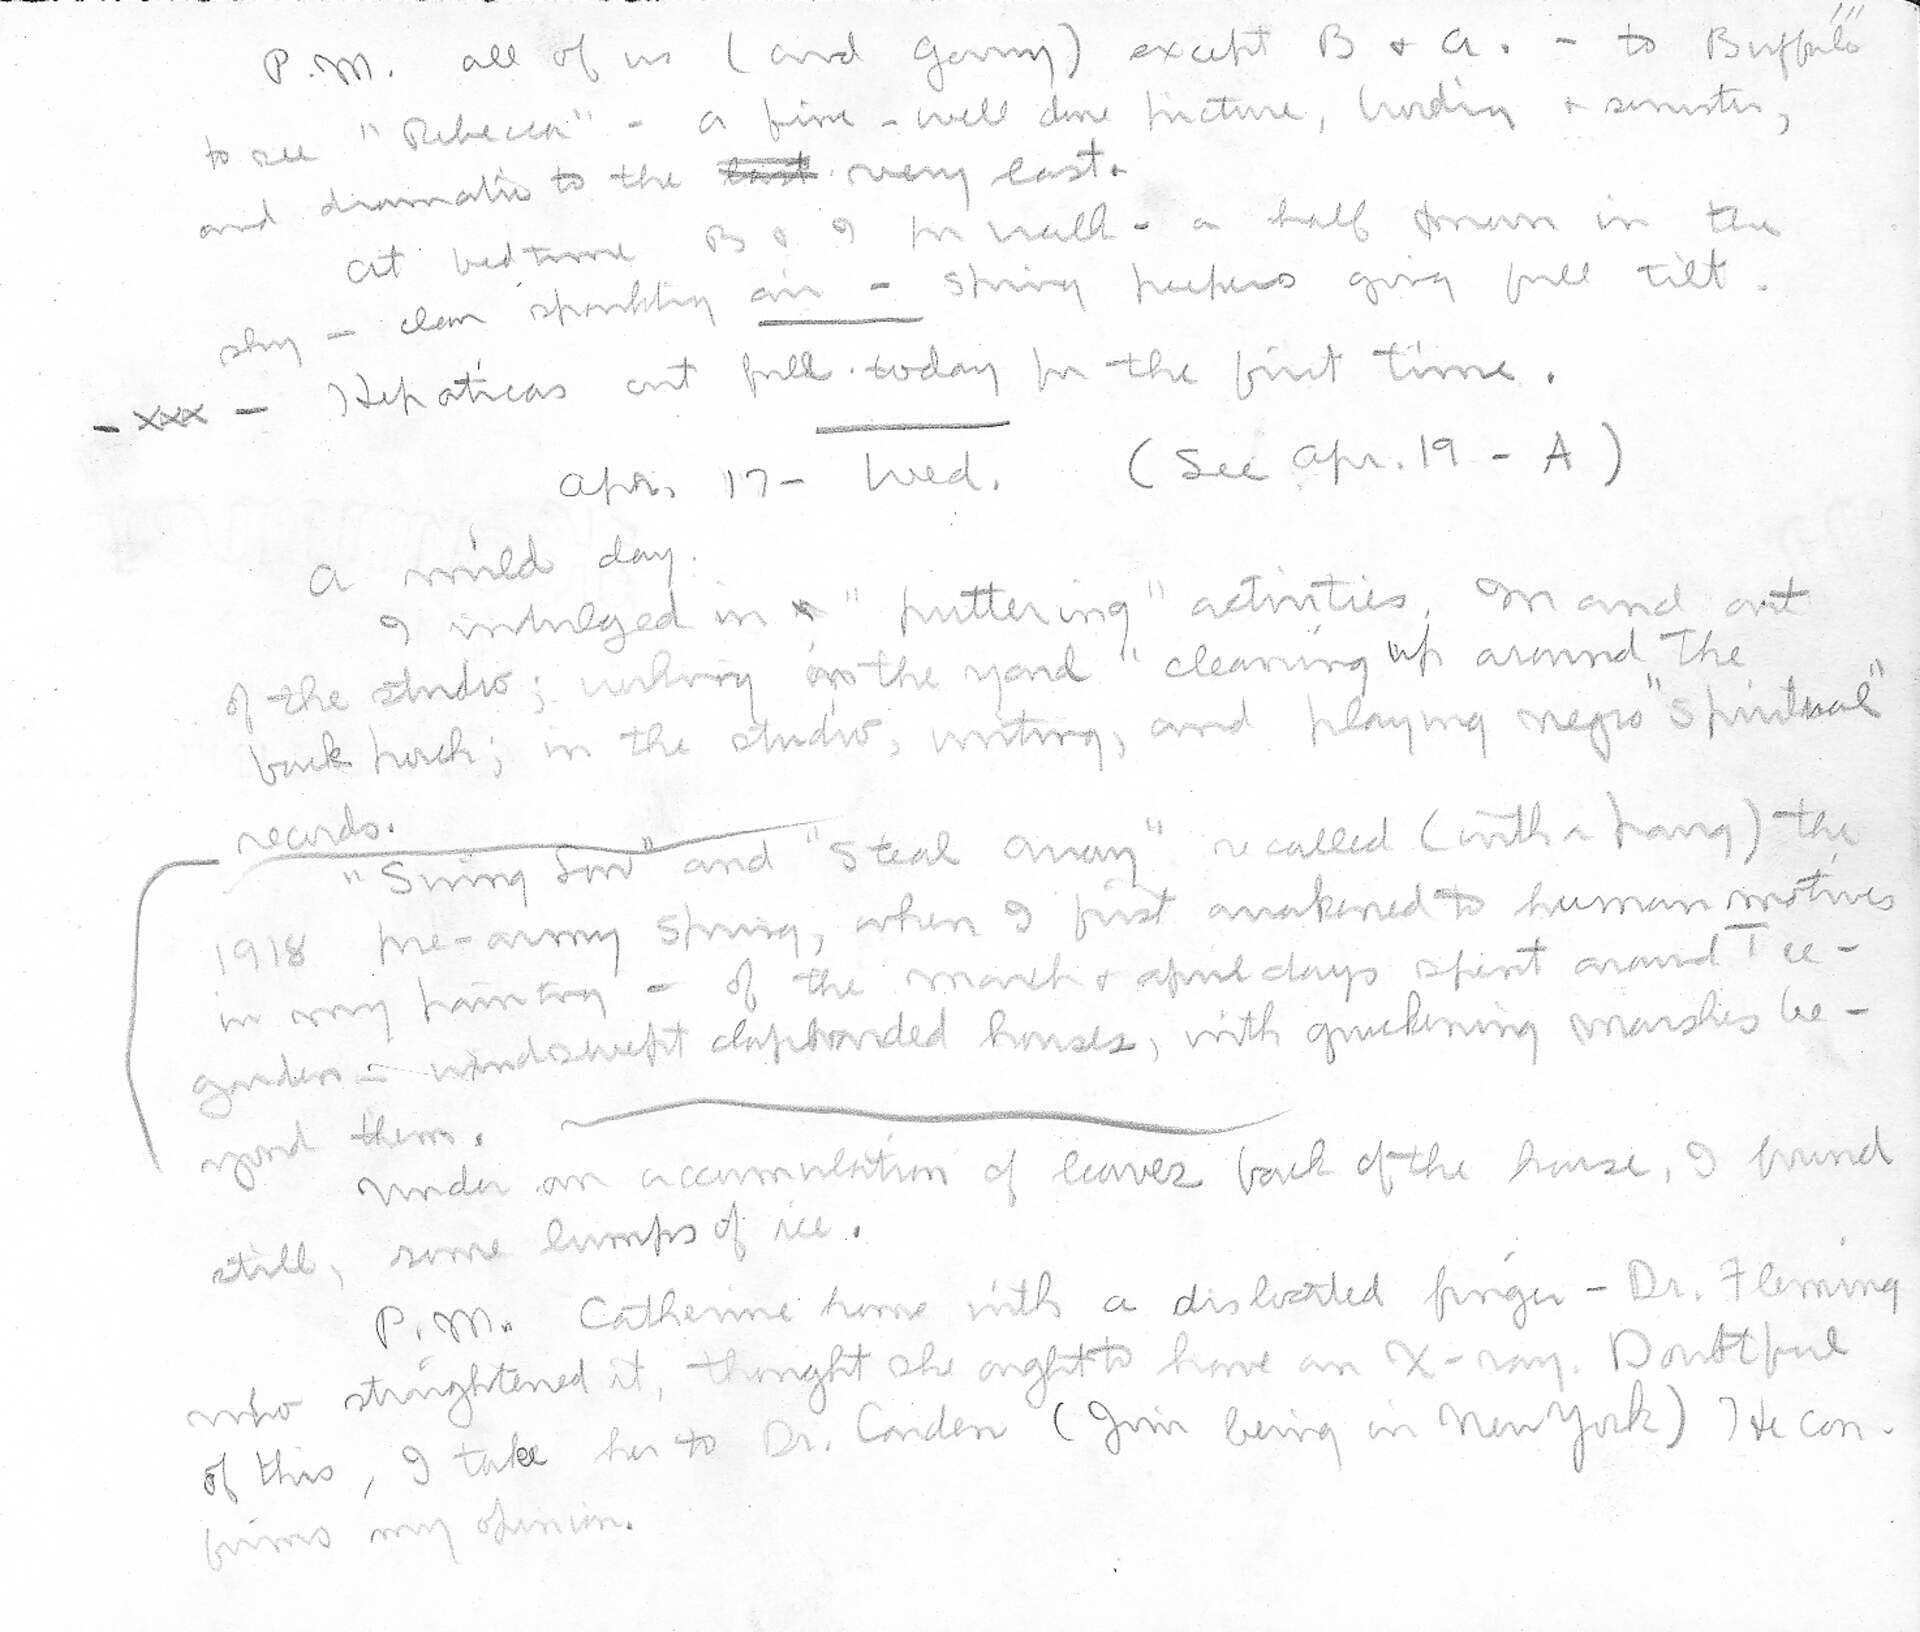 P.M. all of us (and Ganny) except B & A. - to Buffalo
to see "Rebecca" - a fine - well done picture, brooding & sinister,
and dramatic to the last very last.
At bedtime B & I for walk - a half moon in the
sky - clean sparkling air - spring peepers going full tilt.
- xxx - Hepaticas out full today for the first time.
Apr. 17 - Wed. (See Apr. 19 - A)
A mild day.
I indulged in "puttering" activities. In and out
of the studio; working in the yard cleaning up around the
back porch; in the studio, writing, and playing negro "spiritual"
records.
"Swing Low" and "Steal Away" recalled (with a pang) the
1918 pre-army spring, when I first awakened to human motives
in my painting - of the March & April days spent around Tee-
garden - windswept clapboarded houses, with quickening marshes be-
yond them.
Under an accumulation of leaves back of the house, I found
still, some lumps of ice.
P.M. Catherine home with a dislocated finger - Dr. Fleming
who straightened it, thought she ought to have an X-ray. Doubtful
of this, I take her to Dr. Conden (Jim being in New York) He con-
firms my opinion.